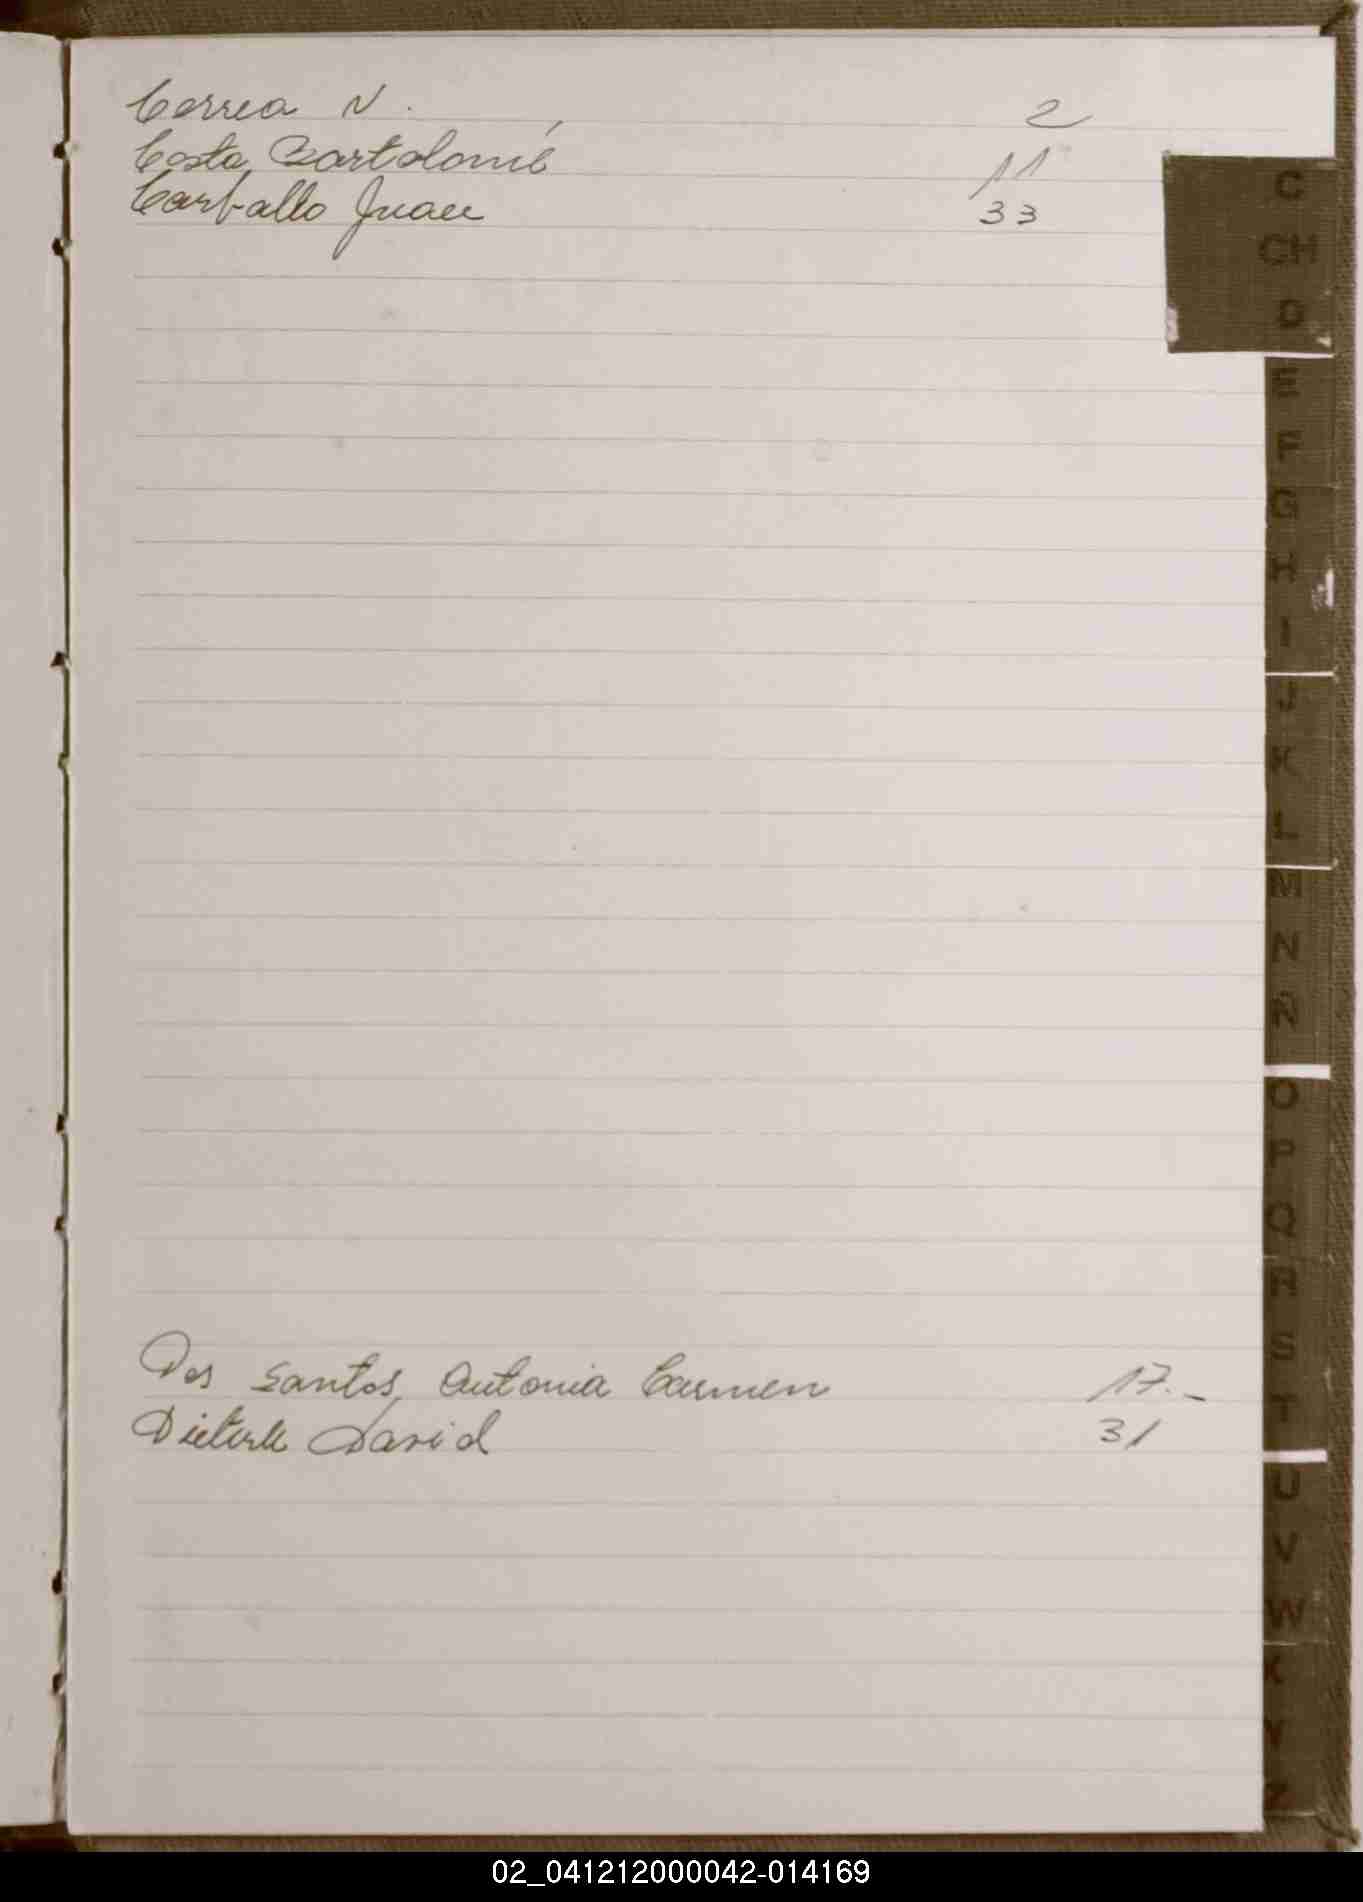 Correa N.
2
Costa, Bartolomé
11
Carballo Juan
33
C
CH
D
E
F
G
H
I
J
K
L
M
N
Ñ
O
P
Q
R
S
T
U
V
W
X
Y
Z
Dos Santos, Antonia Carmen
17.-
Dieterle David
31
02_041212000042-014169